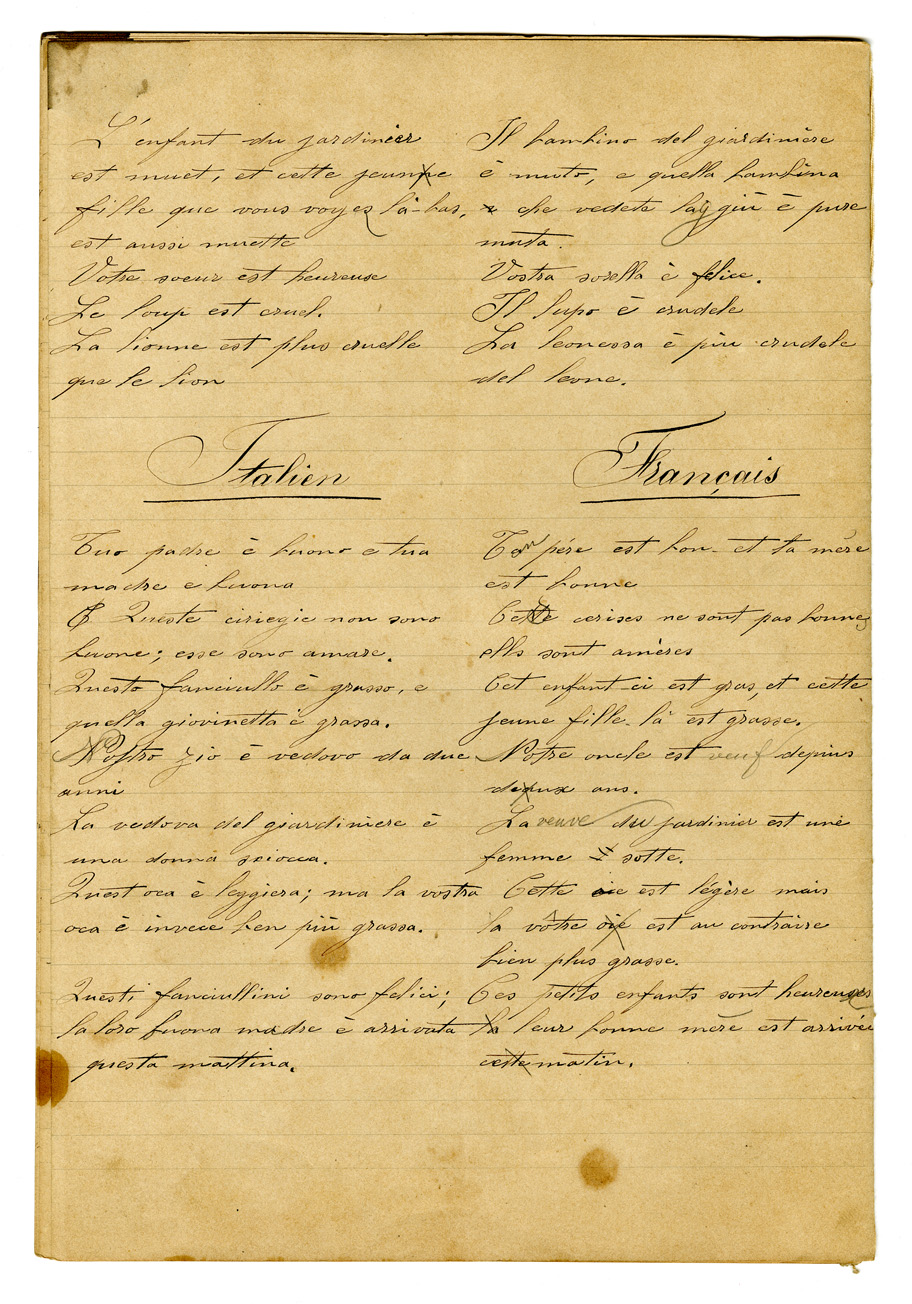 L'enfant du jardinier
est muet, et cette jeune
fille que vous voyez là-bas,
est aussi muette
Votre soeur est heureuse
Le loup est cruel.
La lionne est plus cruelle
que le lion
Il bambino del giardinière
è muto, e quella bambina
che vedete laggiù è pure
muta.
Vostra sorella è felice.
Il lupo è crudele
La leonessa è più crudele
del leone.
Italien
Tuo padre è buono e tua
madre è buona
Queste ciriegie non sono
buone; esse sono amare.
Questo fanciullo è grasso, e
quella giovinetta è grassa.
Nostro zio è vedovo da due
anni
La vedova del giardinière è
una donna sciocca.
Quest oca è leggiera; ma la vostra
oca è invece ben più grassa.
Questi fanciullini sono felici;
la loro buona madre è arrivata
questa mattina.
Français
Ton père est bon et ta mère
est bonne
Ces cerises ne sont pas bonnes
ells sont amères
Cet enfant-ci est gras, et cette
jeune fille-là est grasse.
Notre oncle est veuf depuis
deux ans.
La veuve du jardinier est une
femme sotte.
Cette oie est légère mais
la vôtre est au contraire
bien plus grasse.
Ces petits enfants sont heureux
leur bonne mère est arrivée
ce matin.